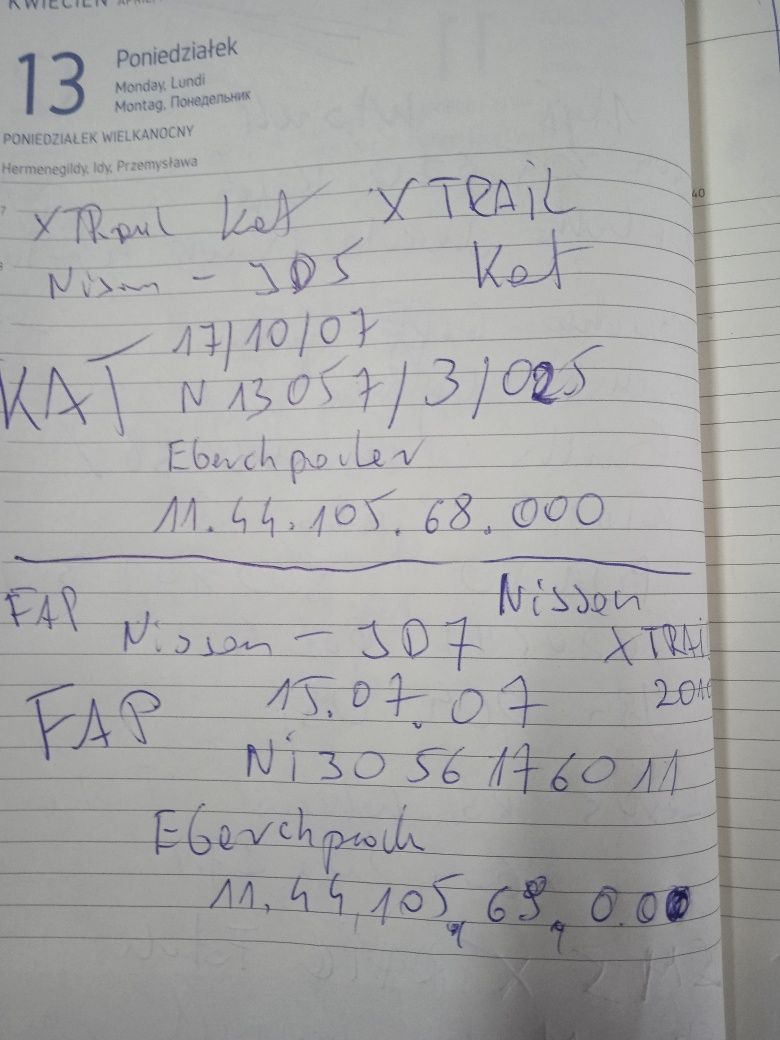 KWIECIEŃ
13 Poniedziałek
Monday, Lundi
Montag, Понедельник
PONIEDZIAŁEK WIELKANOCNY
Hermenegildy, Idy, Przemysława
XTRail Kat X TRAiL
Nissan - JD5 Kat
17/10/07
KAT N 13 057/3/025
Eberchpecher
11.44.105.68.000
FAP Nissan
Nissan - JD7 X TRAi
FAP 15.07.07 201
Ni 30 561 76011
Eberchpech
11.44,105,68,0.00